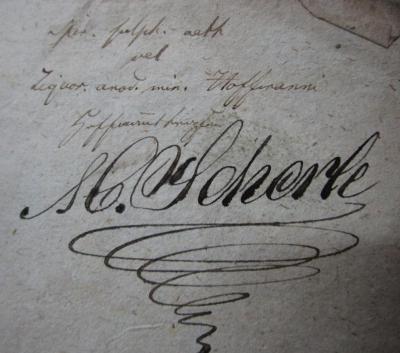 Spir. sulph. aeth
vel
Liquor. anod. min. Hoffmanni
M. Scherle